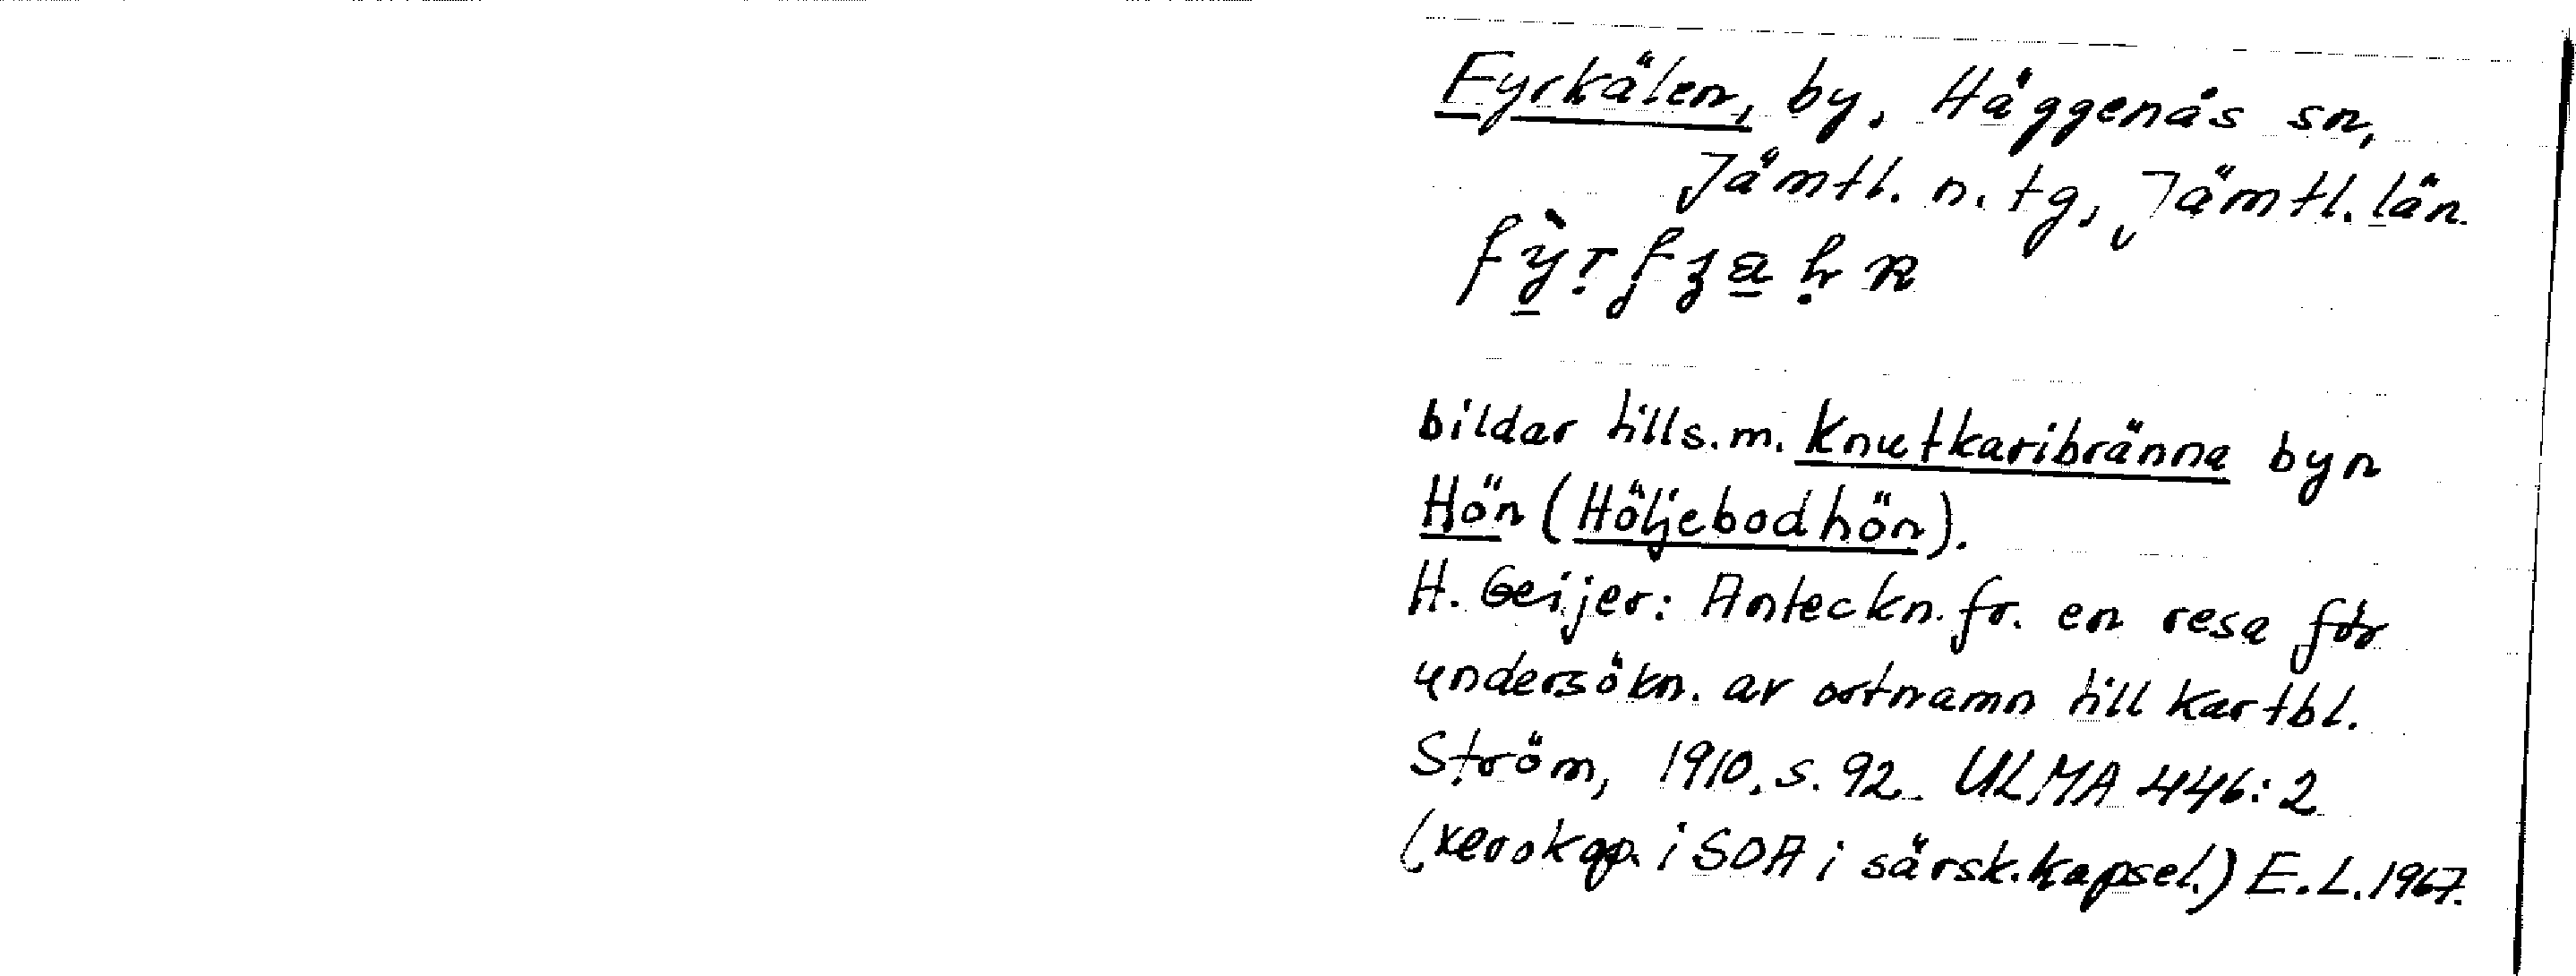 Fyrkälen, by, Häggenås sn,
Jämtl. n. tg, Jämtl. län.
bildar tills.m. Knutkaribränna byn
Hön (Höljebodhön).
H. Geijer: Anteckn. fr. en resa för
undersökn. av ortnamn till kartbl.
Ström, 1910, s. 92. ULMA 446:2
(xerokop. i SOA i särsk. kapsel.) E.L. 1967.